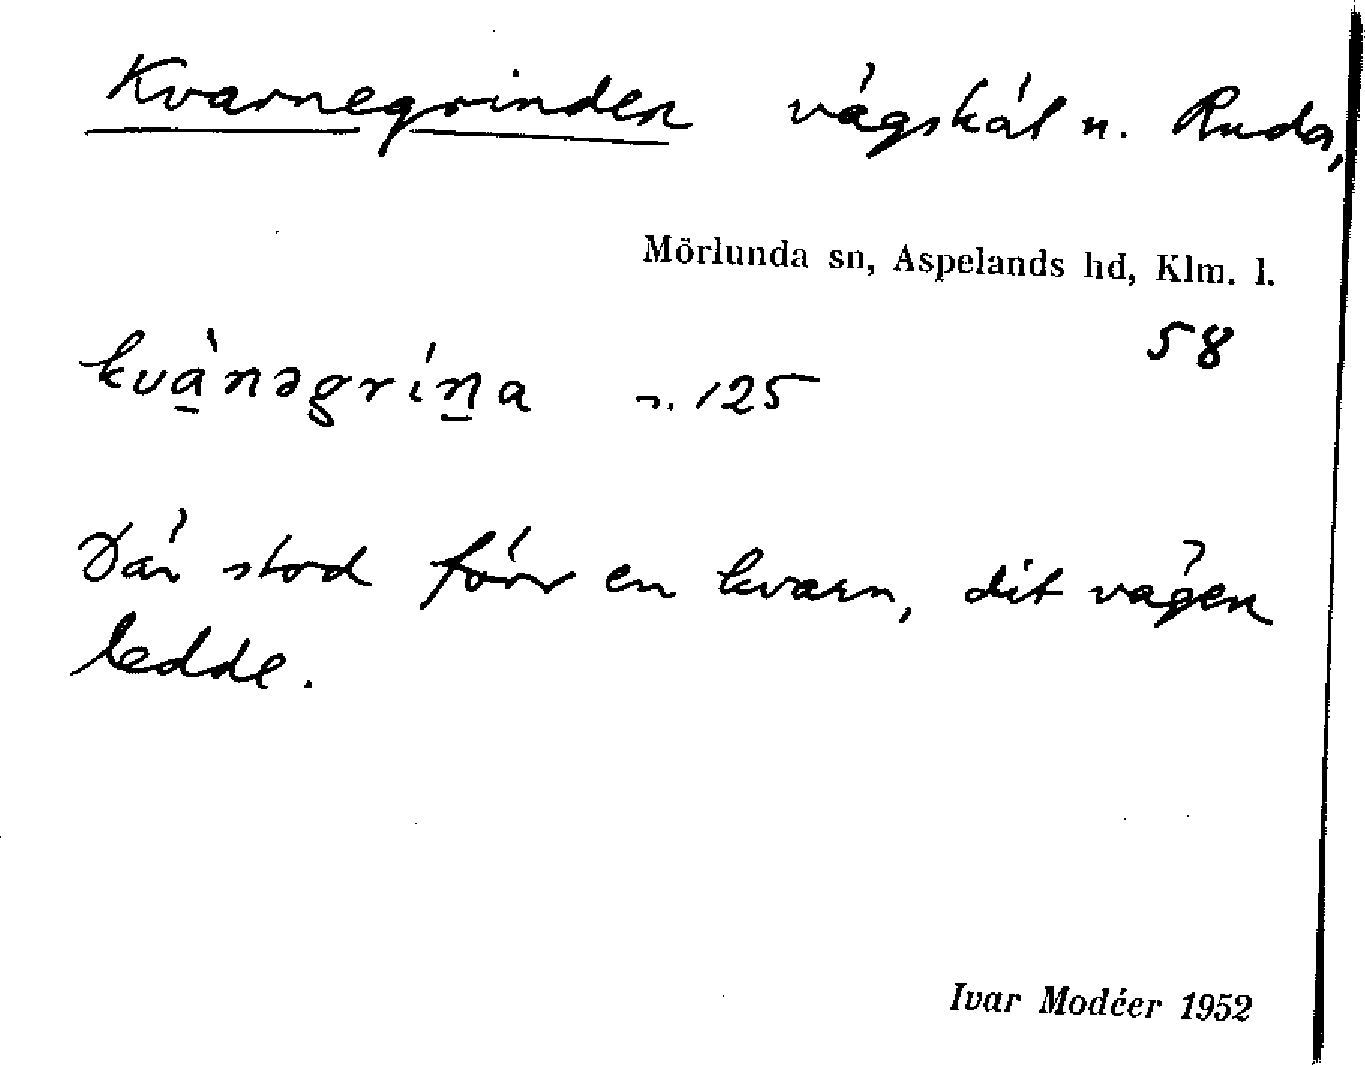 Kvarnegrinden vägskäl n. Ruda,
Mörlunda sn, Aspelands hd, Klm. l.
58
kvànəgrína n. 125
Där stod förr en kvarn, dit vägen
ledde.
Ivar Modéer 1952